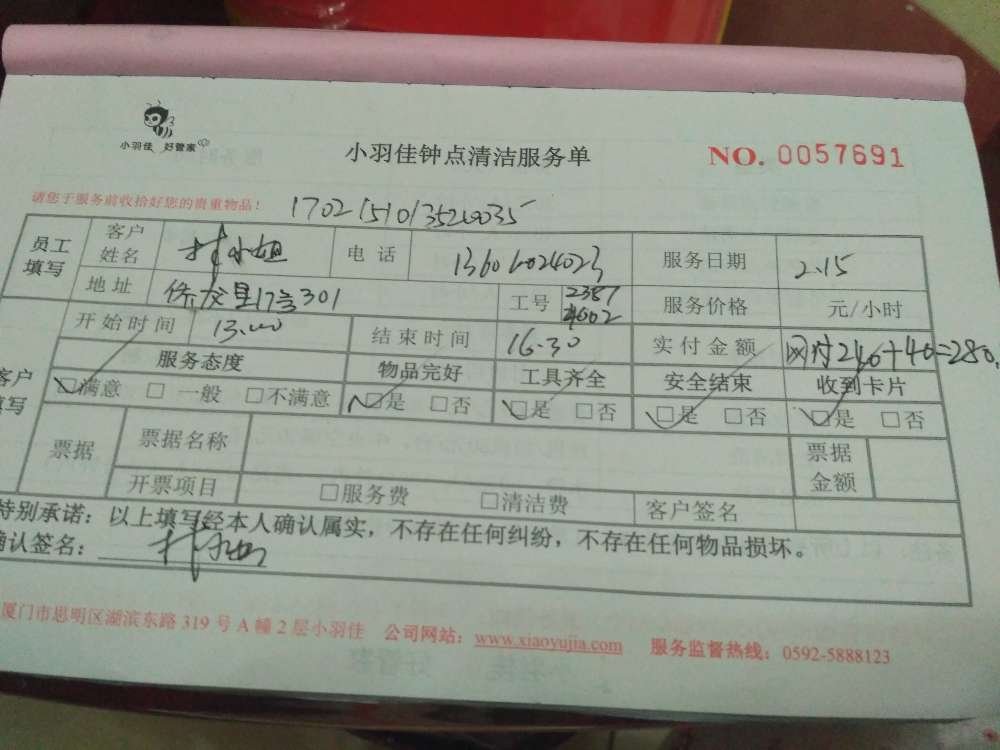 小羽佳 好管家
小羽佳钟点清洁服务单
NO. 0057691
请您于服务前收拾好您的贵重物品!
员工填写 客户姓名 林小姐 电 话 13606024023 服务日期 2.15
地 址 侨龙里17号301 工号 2387 服务价格 元/小时
开始时间 13.00 结束时间 16.30 实付金额 网付240+40=280.
客户填写 服务态度 物品完好 工具齐全 安全结束 收到卡片
☑满意 □ 一般 □不满意 ☑是 □否 ☑是 □否 ☑是 □否 ☑是 □否
票据 票据名称 票据金额
开票项目 □服务费 □清洁费 客户签名
特别承诺:以上填写经本人确认属实,不存在任何纠纷,不存在任何物品损坏。
确认签名:
厦门市思明区湖滨东路 319 号 A 幢 2 层小羽佳 公司网站:www.xiaoyujia.com 服务监督热线:0592-5888123